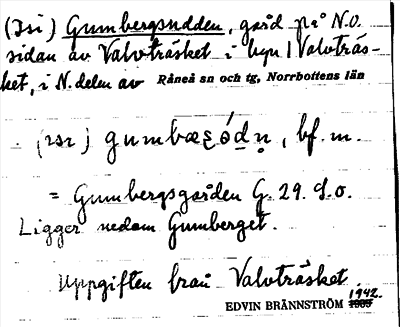 (Isi) Gumbergsudden, gård på N.O.
sidan av Valvträsket i byn Valvträs-
ket, i N. delen av Råneå sn och tg, Norrbottens län
(ısı) , bf. m.
= Gumbergsgården G. 29. S.o.
Ligger nedom Gumberget.
Uppgiften från Valvträsket
1942.
EDVIN BRÄNNSTRÖM